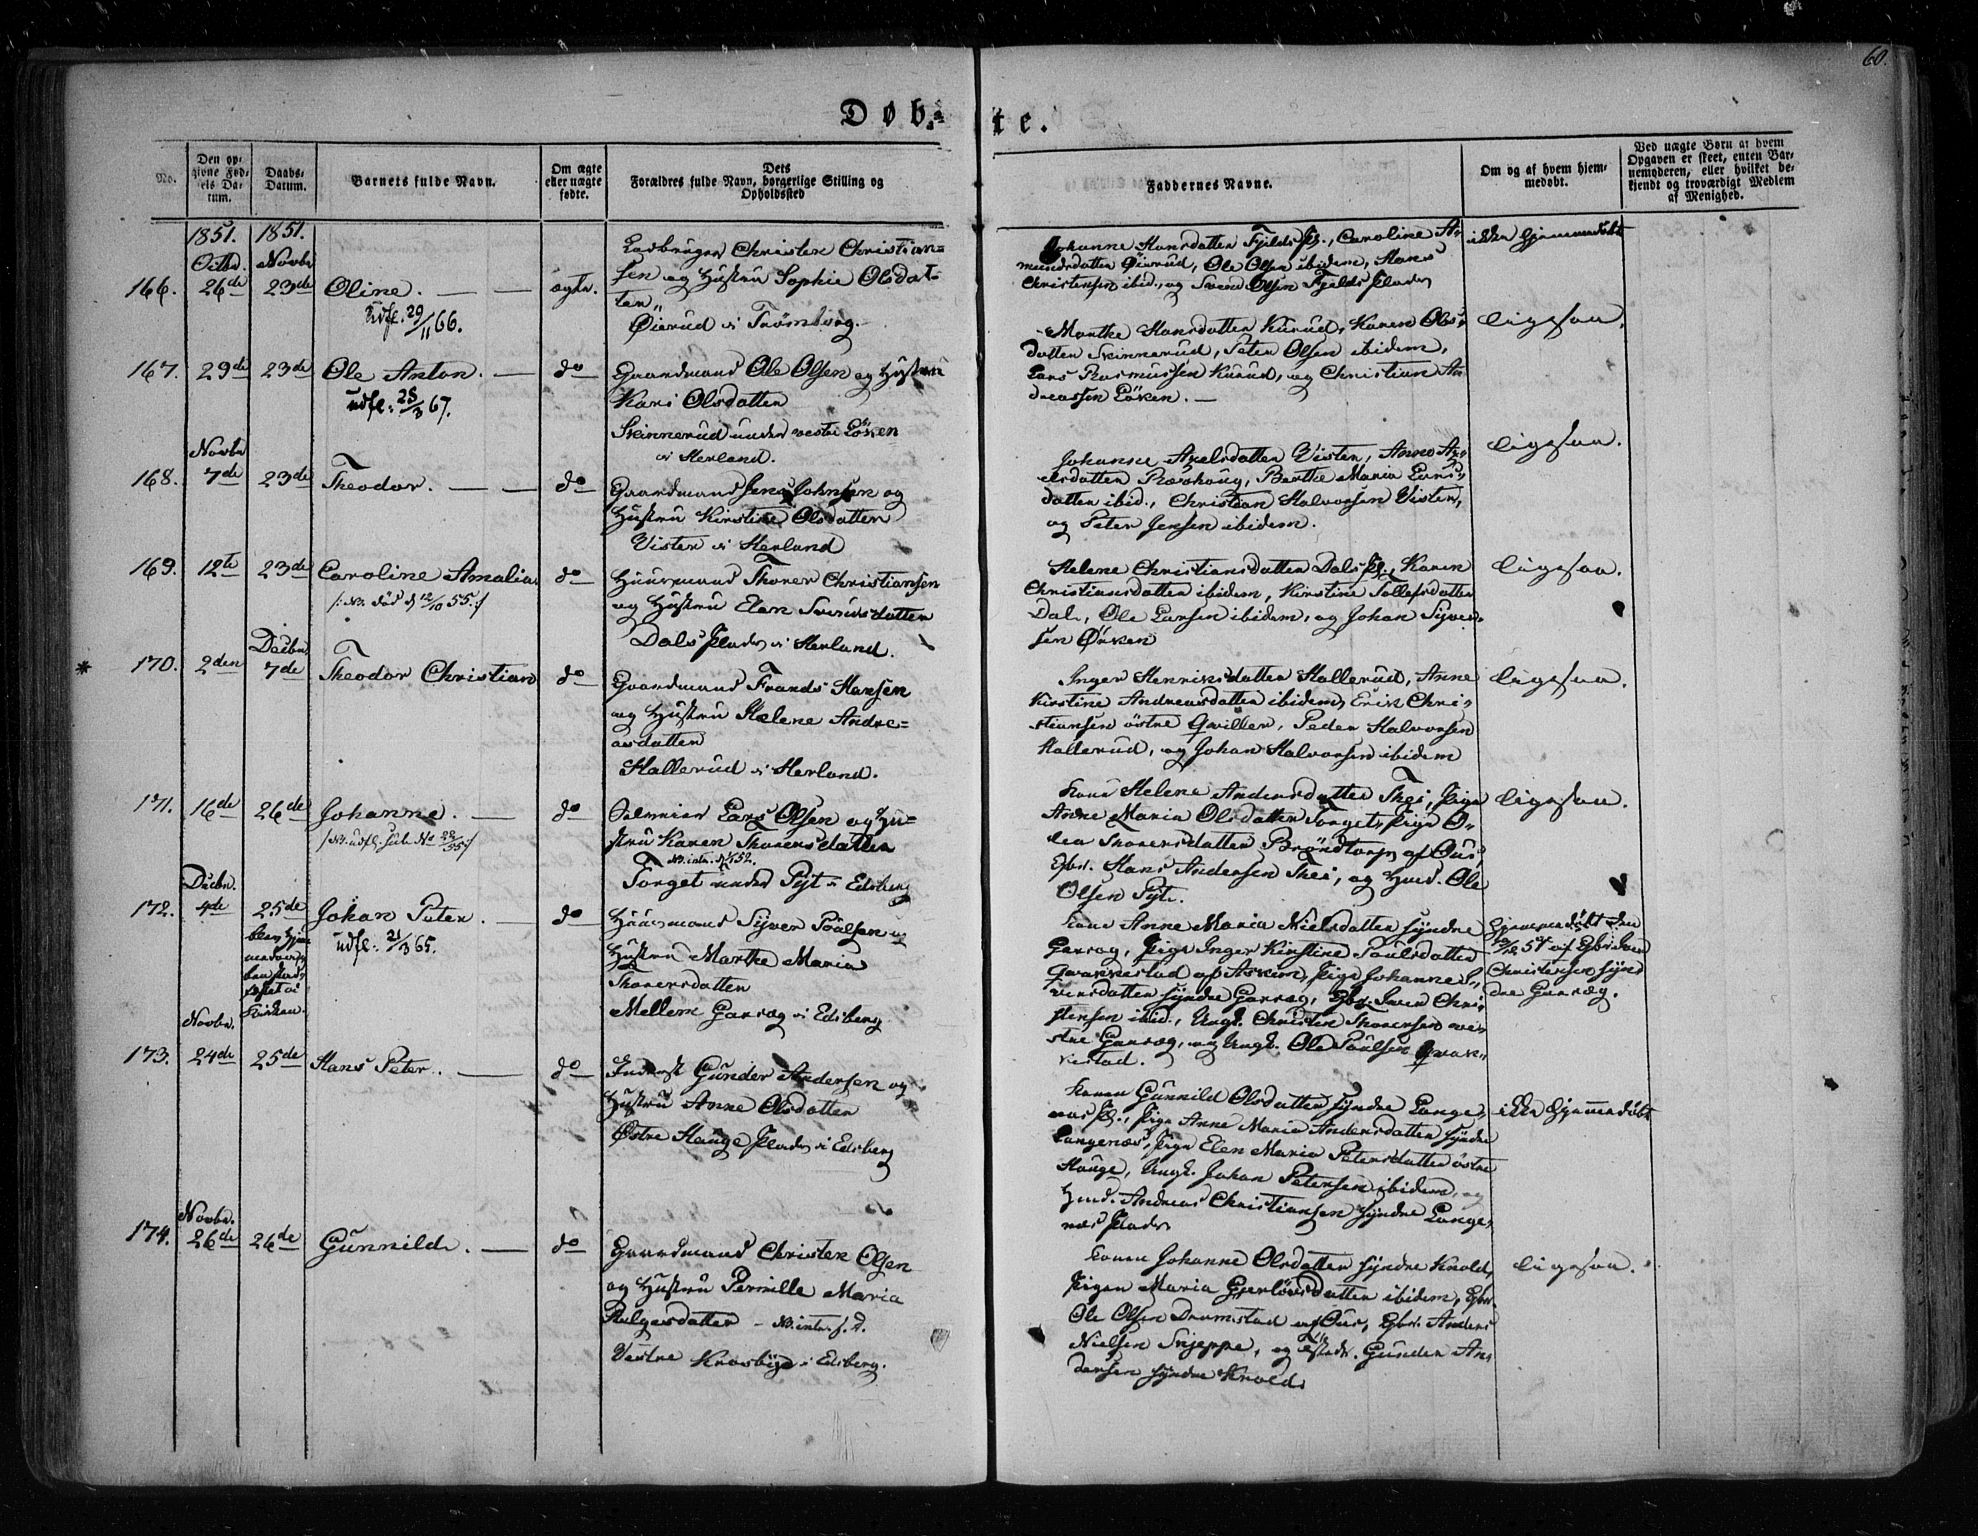 60.
Døbte.
No.
Den opgivne Fødsels Datum.
Daabs-Datum.
Barnets fulde Navn.
Om ægte eller uægte fødte.
Dets Forældres fulde Navn, borgerlige Stilling og Opholdssted
Faddernes Navne.
Om og af hvem hjemmedøbt.
Ved uægte Børn at hvem Opgaven er skeet, enten Barnemoderen, eller hvilket bekjendt og troværdigt Medlem af Menighed.
1851. 1851.
Octbr. Novbr
166. 26de 23de Oline. ægte.
udfl. 29/11 66.
Christen Christian=
sen og Hustru Sophie Olsdat-
ter
Øierud i Trømborg.
Johanne Hansdatter Fjelds Pl., Caroline A-
mundsdatter Øierud, Ole Olsen ibidem, Hans
Christensen ibid., og Svend Olsen Fjelds Plads
ikke hjemmedøbt
167. 29de 23de Ole Anton. do
udfl. 23/3 67.
Gaardmand Ole Olsen og Hustru
Kari Olsdatter
Skinnerud under vestre Løken
i Herland.
Marthe Hansdatter Kurud, Karen Ols-
datter Skinnerud, Peter Olsen ibidem,
Lars Rasmussen Kurud, og Christian An
dreassen Løken.
ligesaa.
Novbr
168. 7de 23de Theodor. do
Gaardmand Jens Johnsen og
Hustru Kirstine Olsdatter
Vister i Herland
Johanne Axelsdatter Vister, Anne Ax-
elsdatter Ravhaug, Berthe Maria Lars-
datter ibid., Christian Halvorsen Vister,
og Peter Jensen ibidem.
ligesaa.
169. 12te 23de Caroline Amalia. do
/: NB. død d 12/10 55. :/
Huusmand Thorer Christiansen
og Hustru Elen Sverdsdatter
Dals Plads i Herland.
Helene Christiansdatter Dals Pl., Karen
Christiansdatter ibidem, Kirstine Tollefsdatter
Dal, Ole Larsen ibidem, og Johan Syver-
sen Ørken
ligesaa.
Decbr.
* 170. 2den 7de Theodor Christian do
Gaardmand Frands Hansen
og Hustru Helene Andre=
asdatter
Hallerud i Herland.
Inger Henriksdatter Hallerud, Anne
Kirstine Andreasdatter ibidem, Erik Chri-
stiansen østre Qviller, Peder Halvorsen
Hallerud, og Johan Halvorsen ibidem
ligesaa.
171. 16de 26de Johanne. do
Lars Olsen og Hu=
stru Karen Thorersdatter
Torget under Tyt i Edsberg
Kone Helene Andersdatter Thei, Pige
Anne Maria Olsdatter Torget, Pige O-
lea Thorersdatter Brøndtorp af Ous,
Gbr. Hans Andersen Thei, og Hmd. Ole
Olsen Tyt.
ligesaa.
Decbr.
172. 4de 25de Johan Peter. do
udfl. 21/3 65.
Huusmand Syver Poulsen og
Hustru Marthe Maria
Thorersdatter
Mellem Garseg i Edsberg
Kone Anne Maria Nielsdatter syndre
Garseg, Pige Inger Kirstine Poulsdatter
Qvakkestad af Askim, Pige Johanne S-
vensdatter syndre Garseg, Gbr. Svend Chri-
stensen ibid., Ungk. Christen Thorersen ve-
stre Garseg, og Ungk. Ole Poulsen Qvak-
kestad.
Hjemmedøbt den
Christensen synd
dre Garseg.
Novbr.
173. 24de 25de Hans Peter. do
Inderst Gunder Andersen og
Hustru Anne Olsdatter
Østre Hauge Plads i Edsberg
Konen Gunnild Olsdatter syndre Lange-
næs Pl., Pige Anne Maria Andersdatter syndre
Langenæs, Pige Elen Maria Petersdatter østre
Hauge, Ungk. Johan Petersen ibidem, og
Hmd. Andreas Christiansen syndre Lange-
næs Plads
ikke hjemmedøbt
Novbr.
174. 26de 26de Gunnild. do
Gaardmand Christen Olsen
og Hustru Pernille Maria
Helgesdatter
Vestre Krosbye i Edsberg.
Konen Johanne Olsdatter syndre Knold,
Pigen Maria Gjerløvsdatter ibidem, Gbr.
Ole Olsen Dramstad af Ous, Gbr. Anders
Nielsen Skjeppe, og Gunder An-
dersen syndre Knold.
ligesaa.